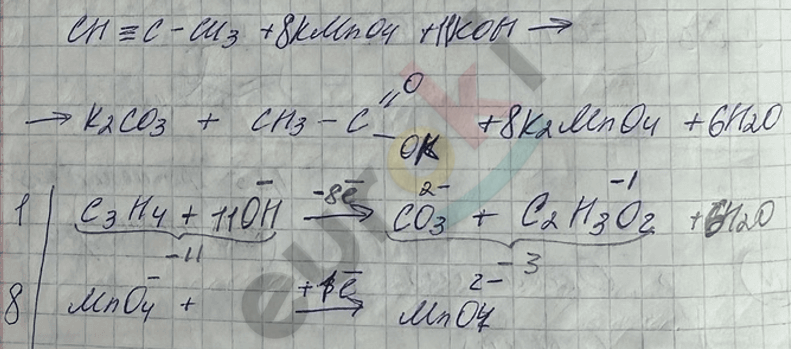 CH ≡ C - CH3 + 8KMnO4 + 11KOH →
→ K2CO3 + CH3 - C =O - OK + 8K2MnO4 + 6H2O
1 | C3H4 + 11OH⁻ -8ē → CO3²⁻ + C2H3O2⁻¹ + 6H2O
-11 -3
8 | MnO4⁻ + +1ē → MnO4²⁻
euroki